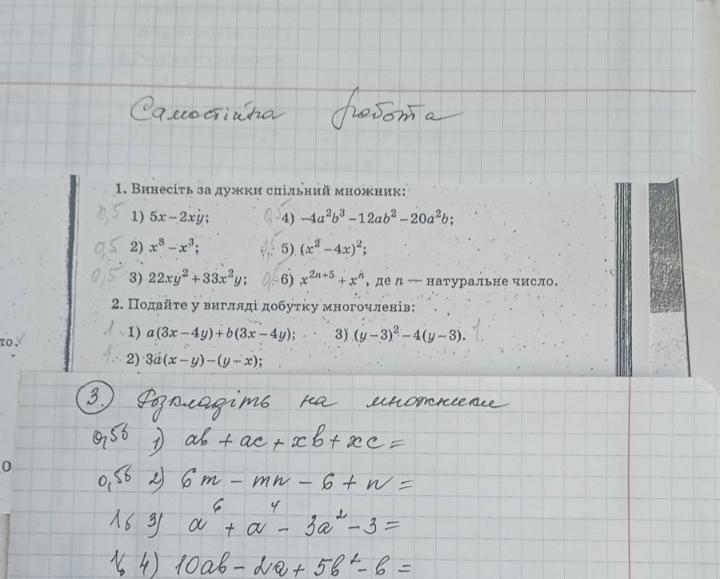 Самостійна робота
1. Винесіть за дужки спільний множник:
0,5 1) 5x – 2xy; 0,5 4) –4a²b³ – 12ab² – 20a²b;
0,5 2) x⁸ – x³; 0,5 5) (x² – 4x)²;
0,5 3) 22xy² + 33x²y; 0,5 6) x²ⁿ⁺⁵ + xⁿ, де n — натуральне число.
2. Подайте у вигляді добутку многочленів:
1. 1) a(3x – 4y) + b(3x – 4y); 3) (y – 3)² – 4(y – 3). 1.
1. 2) 3a(x – y) – (y – x);
3. Розкладіть на множники
0,5б 1) ab + ac + xb + xc =
0,5б 2) 6m – mn – 6 + n =
1б 3) a⁶ + a⁴ – 3a² – 3 =
1б 4) 10ab – 2a + 5b² – b =